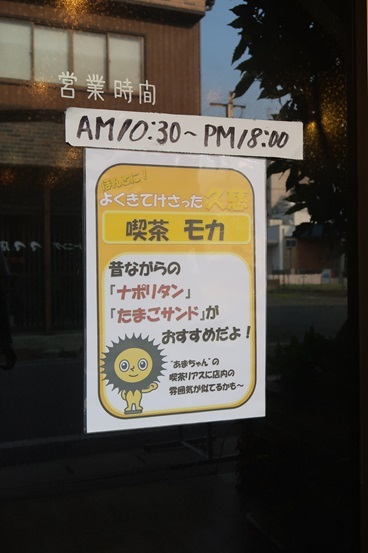 営業時間
AM10:30～PM18:00
ほんとに！
よくきてけさった久慈
喫茶 モカ
昔ながらの
「ナポリタン」
「たまごサンド」が
おすすめだよ！
"あまちゃん"の
喫茶リアスに店内の
雰囲気が似てるかも～